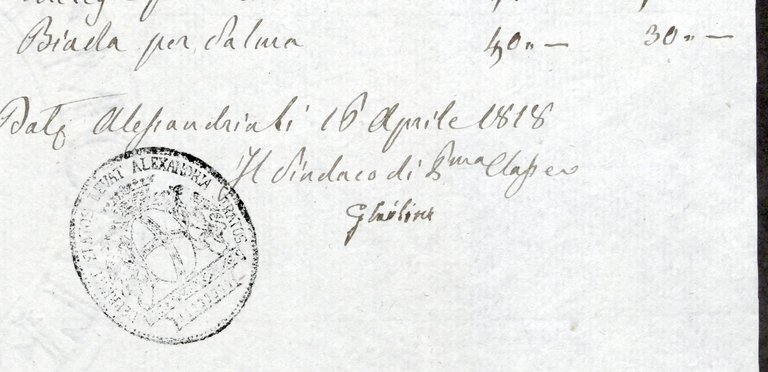 Biada per Salma 40„ — 30„ —
Dat Alessandria li 16 Aprile 1818
Il Sindaco di Pma Classe
Ghilini
DEPRIMIT ELATOS LEVAT ALEXANDRIA STRATOS